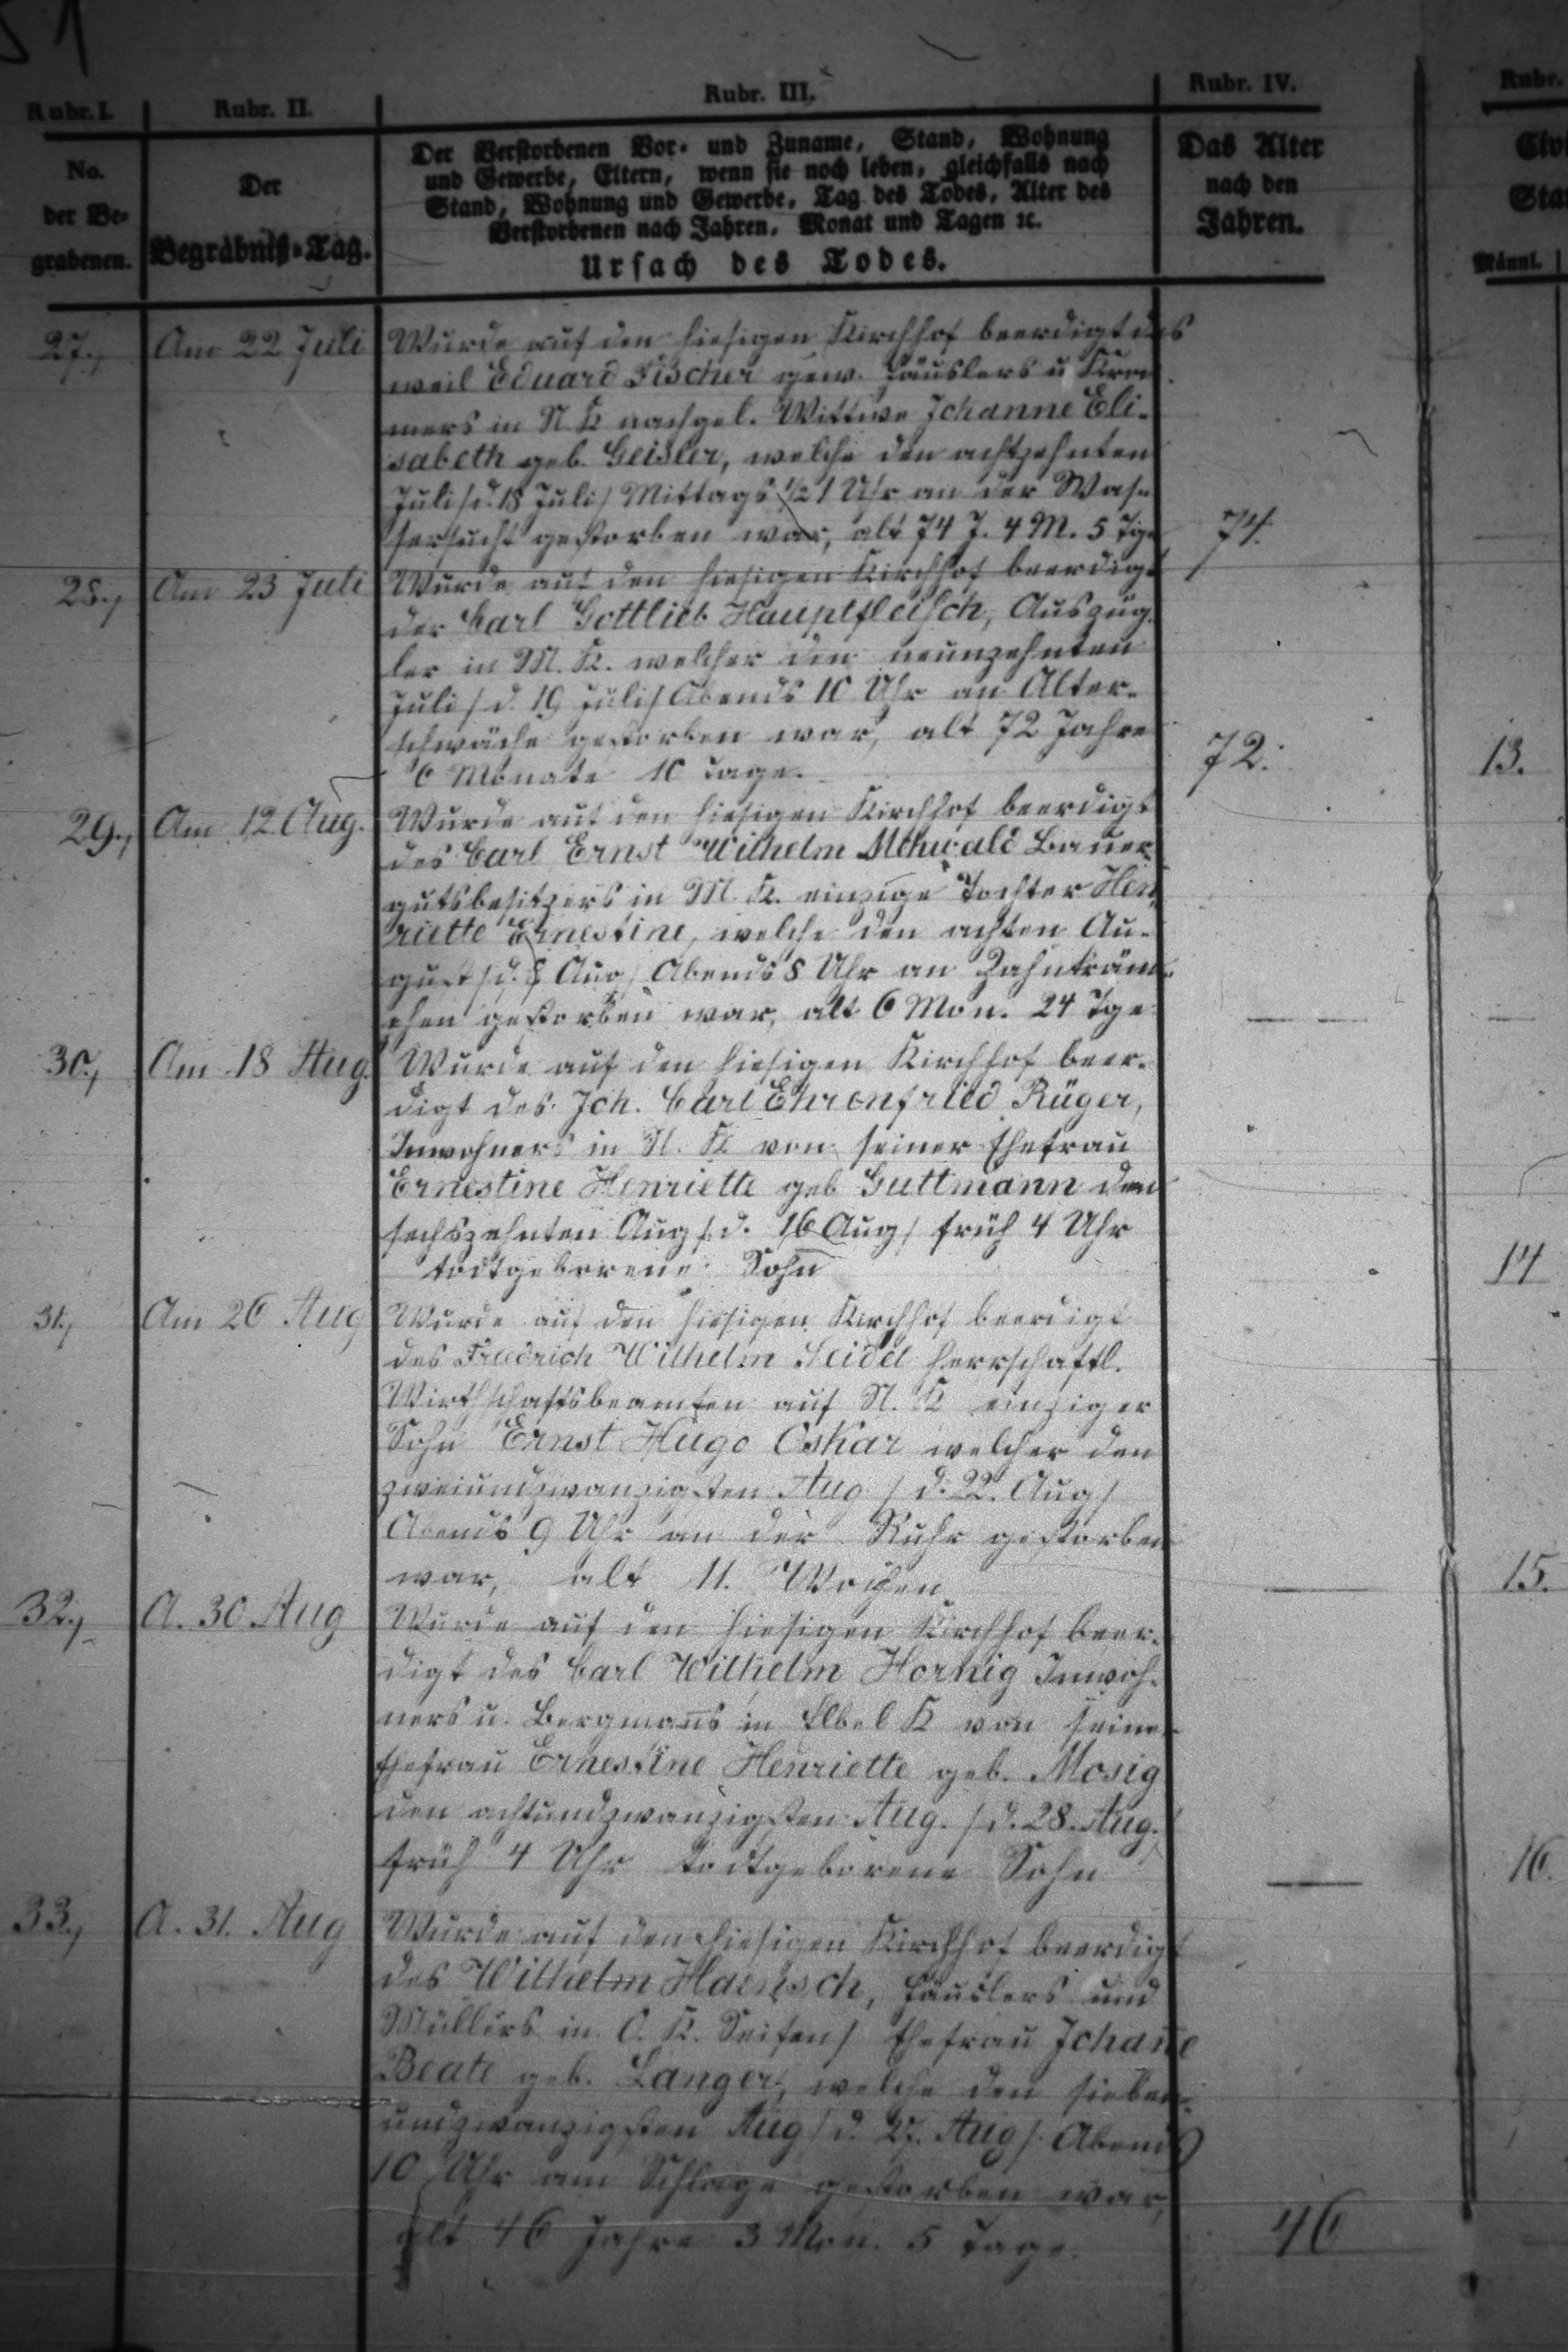 51
Rubr. I. Rubr. II. Rubr. III. Rubr. IV. Rubr.
No. der Be-grabenen.
Der Begräbniß-Tag.
Der Verstorbenen Vor- und Zuname, Stand, Wohnung
und Gewerbe, Eltern, wenn sie noch leben, gleichfalls nach
Stand, Wohnung und Gewerbe, Tag des Todes, Alter des
Verstorbenen nach Jahren, Monat und Tagen ꝛc.
Ursach des Todes.
Das Alter
nach den
Jahren.
Männl.
27., Am 22 Juli Wurde auf den hiesigen Kirchhof beerdigt des
weil Eduard Fischer gew. Häuslers u Kra-
mers in N. K nachgel. Wittwe Johanne Eli-
sabeth geb. Geisler, welche den achtzehnten
Juli /d. 18 Juli/ Mittags ½ 1 Uhr an der Was-
sersucht gestorben war, alt 74 J. 4 M. 5 Tge 74.
28., Am 23 Juli Wurde auf den hiesigen Kirchhof beerdigt
der Carl Gottlieb Hauptfleisch, Auszüg-
ler in M. K. welcher den neunzehnten
Juli / d. 19 Juli/ Abends 10 Uhr an Alter-
schwäche gestorben war, alt 72 Jahre 72. 13.
6 Monate 10 Tage.
29., Am 12 Aug. Wurde auf den hiesigen Kirchhof beerdigt
des Carl Ernst Wilhelm Bauer-
gutsbesitzers in M. K. einzige Tochter Hen-
riette Ernestine, welche den achten Au-
gust /d. 8 Aug/ Abends 8 Uhr an Zahnkräm-
gestorben war, alt 6 Mon. 24 Tge
30., Am 18 Aug. Wurde auf den hiesigen Kirchhof beer-
digt des Joh. Carl Ehrenfried Rüger,
Inwohners in N. K von seiner Ehefrau
Ernestine Henriette geb Guttmann den
sechszehnten Aug /d. 16 Aug/ früh 4 Uhr
todtgeborene Sohn 14
31., Am 26 Aug Wurde auf den hiesigen Kirchhof beerdigt
des Friedrich Wilhelm Seidel herrschaftl.
Wirthschaftsbeamten auf N. K einziger
Sohn Ernst Hugo Oskar welcher den
zweiundzwanzigsten Aug / d. 22. Aug/
Abends 9 Uhr an der Ruhr gestorben
war, alt 11. Wochen 15.
32., A. 30 Aug Wurde auf den hiesigen Kirchhof beer-
digt des Carl Wilhelm Hornig Inwoh-
ners u. Bergmans in K von seiner
Ehefrau Ernestine Henriette geb. Mosig
den achtundzwanzigsten Aug. /d. 28. Aug./
früh 4 Uhr todtgeborene Sohn 16.
33., A. 31. Aug Wurde auf den hiesigen Kirchhof beerdigt
des Wilhelm Haensch, Häuslers und
Müllers in O. K. Seifen/ Ehefrau Johane
Beate geb. Langer, welche den sieben-
undzwanzigsten Aug /d. 27. Aug/. Abends
10 Uhr am Schlage gestorben war,
alt 46 Jahre 3 Mon. 5 Tage. 46